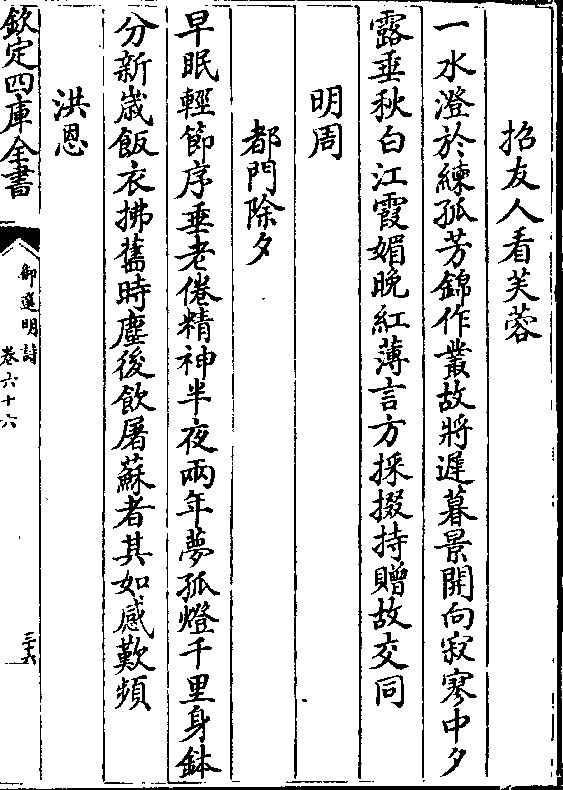 招友人看芙蓉
一水澄於練孤芳錦作叢故將遲暮景開向寂寥中夕
露垂秋白江霞媚晚紅薄言方採掇持贈故交同
明周
都門除夕
早眠輕節序垂老倦精神半夜兩年夢孤燈千里身鉢
分新歲飯衣拂舊時塵後飲屠蘇者其如感歎頻
洪恩
欽定四庫全書
御選明詩
卷六十六
三六